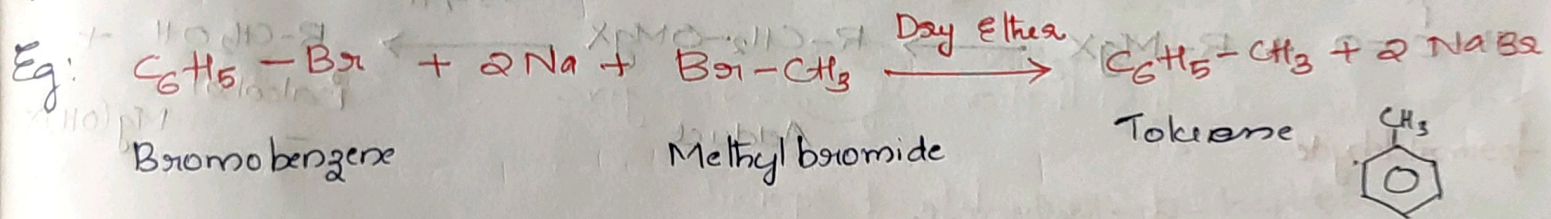 Eg: C₆H₅-Br + 2Na + Br-CH₃ Dry Ether → C₆H₅-CH₃ + 2 NaBr
Bromobenzene Methyl bromide Toluene CH₃